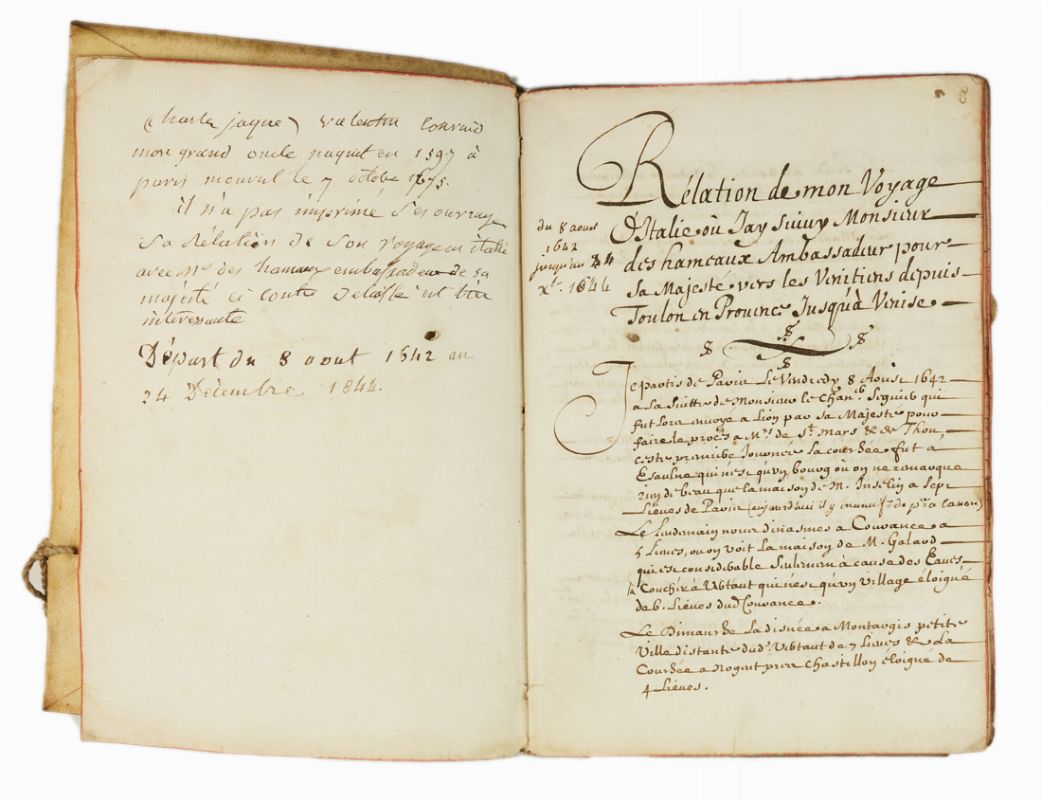 (charles jaques) valentin Conrard
mon grand oncle naquit en 1597 à
paris mourut le 7 octobre 1675.
il n'a pas imprimé Ses ouvrages
Sa Relation de Son voyage en italie
avec Mr des hameaux embassadeur de sa
majesté ci contre est bien
intéressante
Départ du 8 aout 1642 au
24 Décembre 1844.
8
Rélation de mon Voyage
D'Italie où Jay suiuy Monsieur
des hameaux Ambassadeur pour
sa Majesté vers les Vénitiens depuis
Toulon en Prouence Jusqu'à Venise
du 8 aout
1642
jusqu'au 24
xbre 1644
Je partis de Paris Le Vendredy 8 Aoust 1642
a La suitte de Monsieur le Chancr Seguier qui
fut Lors enuoyé a Lion par sa Majesté pour
faire le procès a Mrs de St Mars & de Thou,
ceste premiere Journée la couchée fut a
Esaulne qui n'est qu'vn bourg où on ne remarque
rien de beau que la maison de M. Inselin a sept
Lieües de Paris (aujourd'hui il y
Le Lendemain nous dinasmes a Couvance a
5 Lieües, ou on voit la maison de M. Galard
qui est considérable seulement à cause des Eaues
la Couchée à Vrbtaut qui n'est qu'vn village éloigné
de 6. Liéues dud. Couvance.
Le Dimanche La disnée a Montargis petite
Ville distante dud. Vrbtaut de 7 Lieues & La
Couchée a Nogent prez Chastillon éloigné de
4 Liéues.